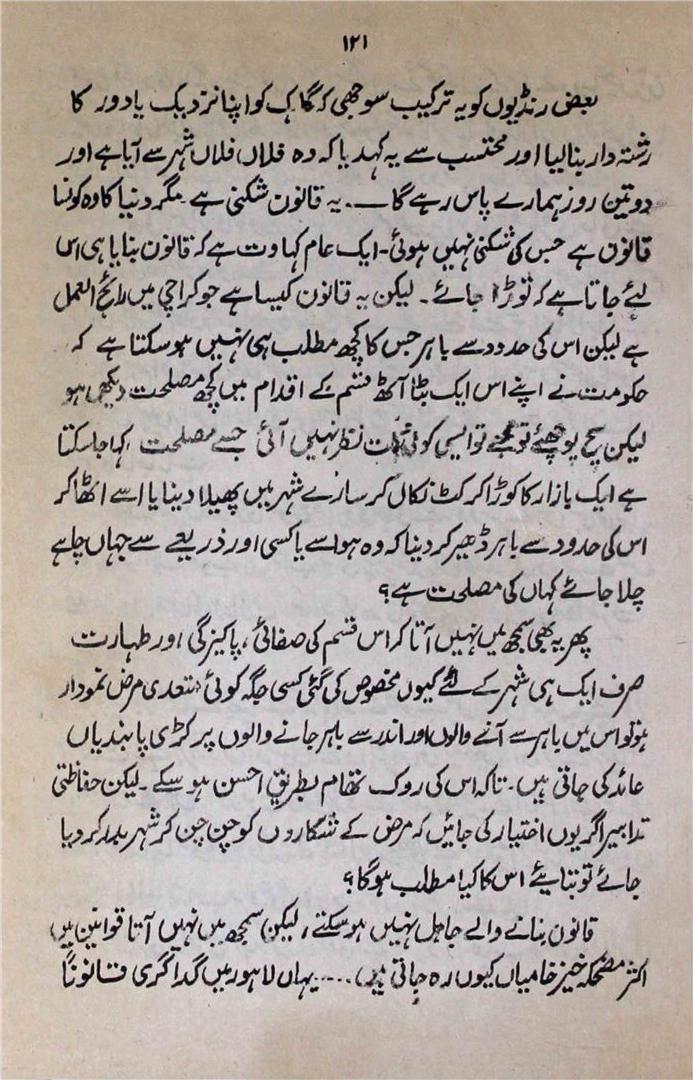 ۱۲۱
بعض رنڈیوں کو یہ ترکیب سوجھی کہ گاہک کو اپنا نزدیک یا دور کا
رشتہ دار بنا لیا اور محتسب سے یہ کہدیا کہ وہ فلاں فلاں شہر سے آیا ہے اور
دو تین روز ہمارے پاس رہے گا ــــ۔ یہ قانون شکنی ہے مگر دنیا کا وہ کونسا
قانون ہے جس کی شکنی نہیں ہوئی۔ ایک عام کہاوت ہے کہ قانون بنایا ہی اس
لئے جاتا ہے کہ توڑا جائے۔ لیکن یہ قانون کیسا ہے جو کراچی میں رائج العمل
ہے لیکن اس کی حدود سے باہر جس کا کچھ مطلب ہی نہیں ہو سکتا ہے کہ
حکومت نے اپنے اس ایک بٹا آٹھ قسم کے اقدام میں کچھ مصلحت دیکھی ہو
لیکن سچ پوچھئے تو مجھے تو ایسی کوئی بات نظر نہیں آئی جسے مصلحت کہا جا سکتا
ہے ایک بازار کا کوڑا کرکٹ نکال کر سارے شہر میں پھیلا دینا یا اسے اٹھا کر
اس کی حدود سے باہر ڈھیر کر دینا کہ وہ ہوا سے یا کسی اور ذریعے سے جہاں چاہے
چلا جائے کہاں کی مصلحت ہے؟
پھر یہ بھی سمجھ میں نہیں آتا کہ اس قسم کی صفائی، پاکیزگی اور طہارت
صرف ایک ہی شہر کے لئے کیوں مخصوص کی گئی کسی جگہ کوئی متعدی مرض نمودار
ہو تو اس میں باہر سے آنے والوں اور اندر سے باہر جانے والوں پر کڑی پابندیاں
عائد کی جاتی ہیں۔ تاکہ اس کی روک تھام بطریق احسن ہو سکے۔ لیکن حفاظتی
تدابیر اگر یوں اختیار کی جائیں کہ مرض کے شکاروں کو چن چن کر شہر بدر کر دیا
جائے تو بتایئے اس کا کیا مطلب ہوگا؟
قانون بنانے والے جاہل نہیں ہو سکتے، لیکن سمجھ میں نہیں آتا قوانین میں
اکثر مضحکہ خیز خامیاں کیوں رہ جاتی ہیں۔.... یہاں لاہور میں گداگری قانوناً